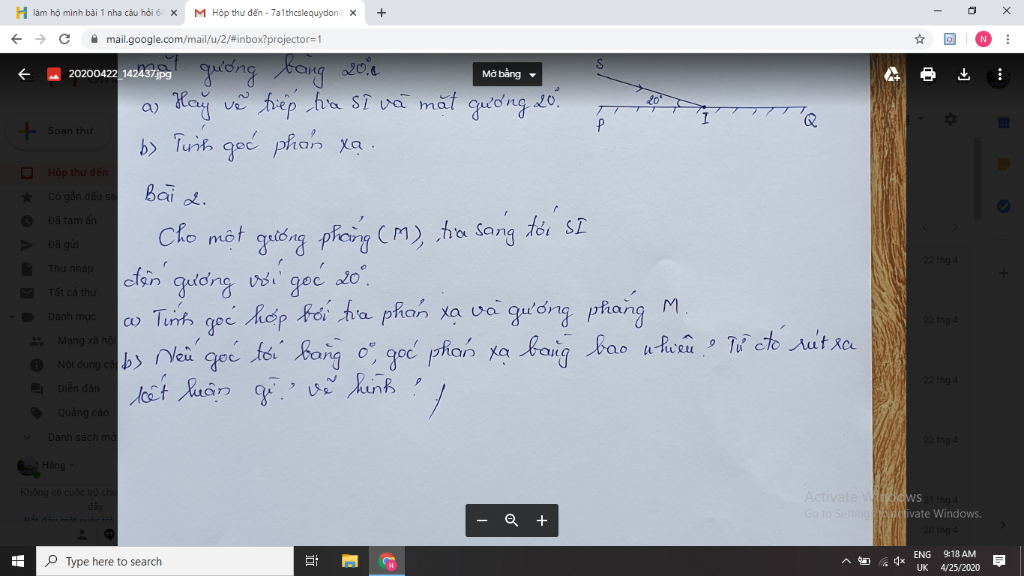 làm hộ mình bài 1 nha câu hỏi 6
Hộp thư đến - 7a1thcslequydon
mail.google.com/mail/u/2/#inbox?projector=1
N
20200422_142437.jpg
Mở bằng
Soạn thư
Hộp thư đến
Có gắn dấu sa
Đã tạm ẩn
Đã gửi
Thư nháp
Tất cả thư
Danh mục
Mạng xã hội
Nội dung cá
Diễn đàn
Quảng cáo
Danh sách mở
Hằng
Không có cuộc trò chu
đây
Bắt đầu một cuộc trò
mặt gương bằng 20°.
a) Hãy vẽ tiếp tia SI và mặt gương 20°.
b) Tính góc phản xạ.
S
20°
P
I
Q
Bài 2.
Cho một gương phẳng (M), tia sáng tới SI
đến gương với góc 20°.
a) Tính góc hợp bởi tia phản xạ và gương phẳng M.
b) Nếu góc tới bằng 0°, góc phản xạ bằng bao nhiêu? Từ đó rút ra
kết luận gì? vẽ hình?
22 thg 4
22 thg 4
22 thg 4
22 thg 4
21 thg 4
20 thg 4
Activate Windows
Go to Settings to activate Windows.
Type here to search
ENG
UK
9:18 AM
4/25/2020